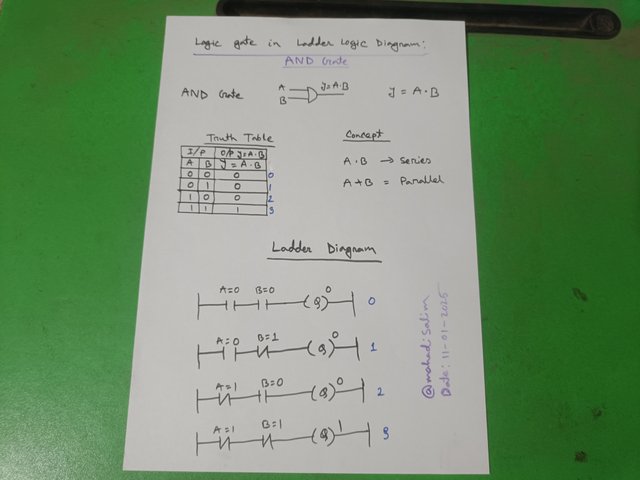 Logic gate in Ladder Logic Diagram:
AND Gate
AND Gate
A
B
Y=A·B
Y = A·B
Truth Table
I/P O/P Y=A·B
A B Y = A·B
0 0 0 0
0 1 0 1
1 0 0 2
1 1 1 3
Concept
A·B → Series
A+B = Parallel
Ladder Diagram
A=0 B=0 Q 0 0
A=0 B=1 Q 0 1
A=1 B=0 Q 0 2
A=1 B=1 Q 1 3
@mahadisalim
Date: 11-01-2025